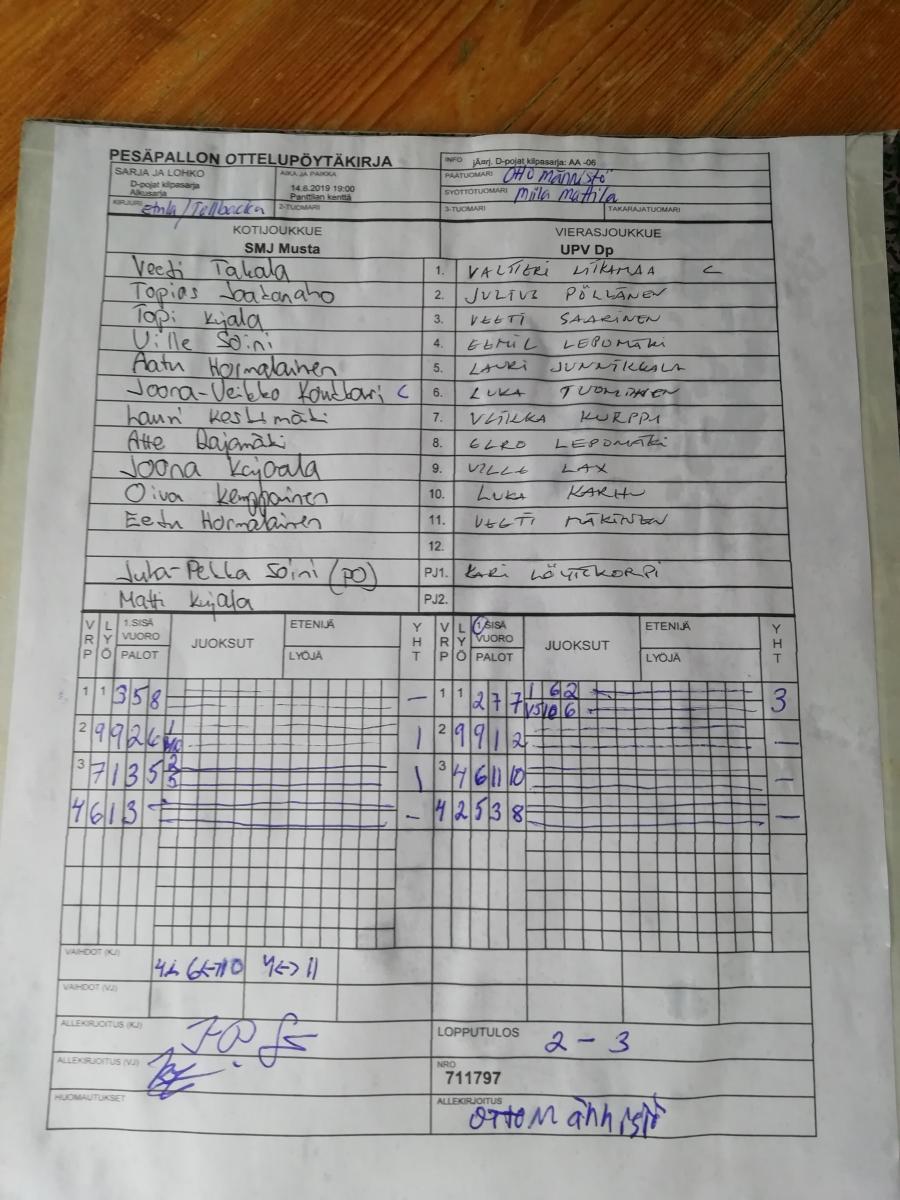 PESÄPALLON OTTELUPÖYTÄKIRJA
INFO jÄärj. D-pojat kilpasarja: AA -06
SARJA JA LOHKO
D-pojat kilpasarja
Alkusarja
AIKA JA PAIKKA
14.6.2019 19:00
Panttilan kenttä
PÄÄTUOMARI Otto männistö
SYÖTTÖTUOMARI Miila Mattila
KIRJURI / Tellbacka
2-TUOMARI
3-TUOMARI
TAKARAJATUOMARI
KOTIJOUKKUE
SMJ Musta
VIERASJOUKKUE
UPV Dp
Veeti Takala 1. VALTTERI C
Topias 2. JULIUS PÖLLÄNEN
Topi Kujala 3. VEETI SAARINEN
Ville Soini 4. EEMIL LEPOMÄKI
Aatu Hormalainen 5. LAURI JUNNIKKALA
Joona-Veikko C 6. LUKA
Lauri Keskimäki 7. KURPPA
Atte Rajamäki 8. EERO LEPOMÄKI
Joona 9. VILLE LAX
Oiva Kemppainen 10. LUKA KARHU
Eetu Hormalainen 11. VEETI MÄKINEN
12.
Juha-Pekka Soini (PO) PJ1. KARI
Matti Kujala PJ2.
VRP LYÖ 1.SISÄ VUORO PALOT JUOKSUT ETENIJÄ LYÖJÄ YHT VRP LYÖ 1.SISÄ VUORO PALOT JUOKSUT ETENIJÄ LYÖJÄ YHT
1 1 3 5 8 – 1 1 2 7 7 1 6 2 3
2 9 9 2 1 2 9 9 1 2 –
3 7 1 3 5 2 5 1 3 4 6 11 10 –
4 6 1 3 – 4 2 5 3 8 –
VAIHDOT (KJ) 6<->10 4<->11
VAIHDOT (VJ)
ALLEKIRJOITUS (KJ)
LOPPUTULOS 2 – 3
ALLEKIRJOITUS (VJ)
NRO
711797
HUOMAUTUKSET
ALLEKIRJOITUS
OTTO Männistö